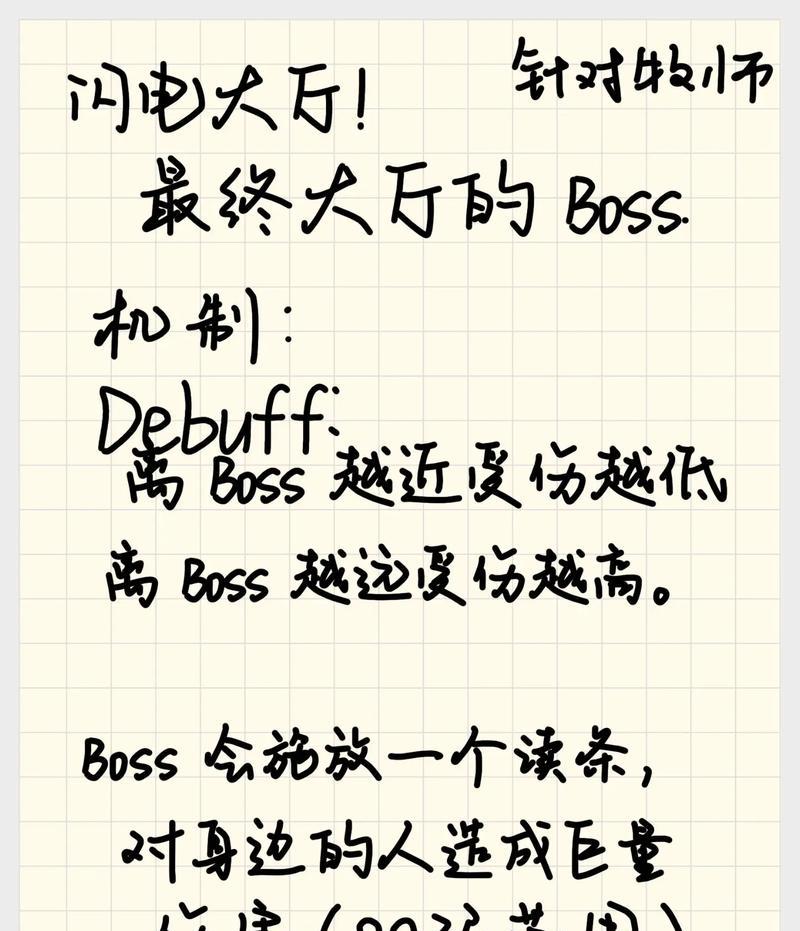 针对牧师
闪电大厅!
最终大厅的 Boss.
机制:
Debuff:
离 Boss 越近受伤越低
离 Boss 越远受伤越高。
Boss 会施放一个读条,
对身边的人造成巨量